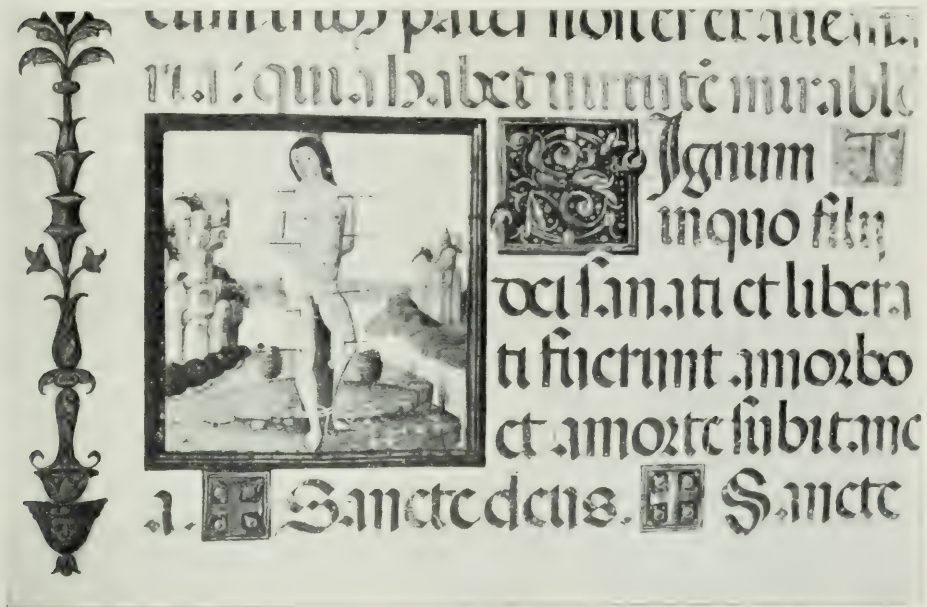 pater noster et ave ma
ria: quia habet virtutē mirabile
SIgnum T
inquo filij
dei sanati et libera
ti fuerunt amorbo
et amorte subitane
a. Sancte deus. Sancte